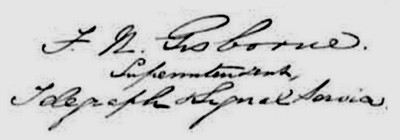 F. N. Gisborne.
Superintendent,
Telegraph & Signal Service